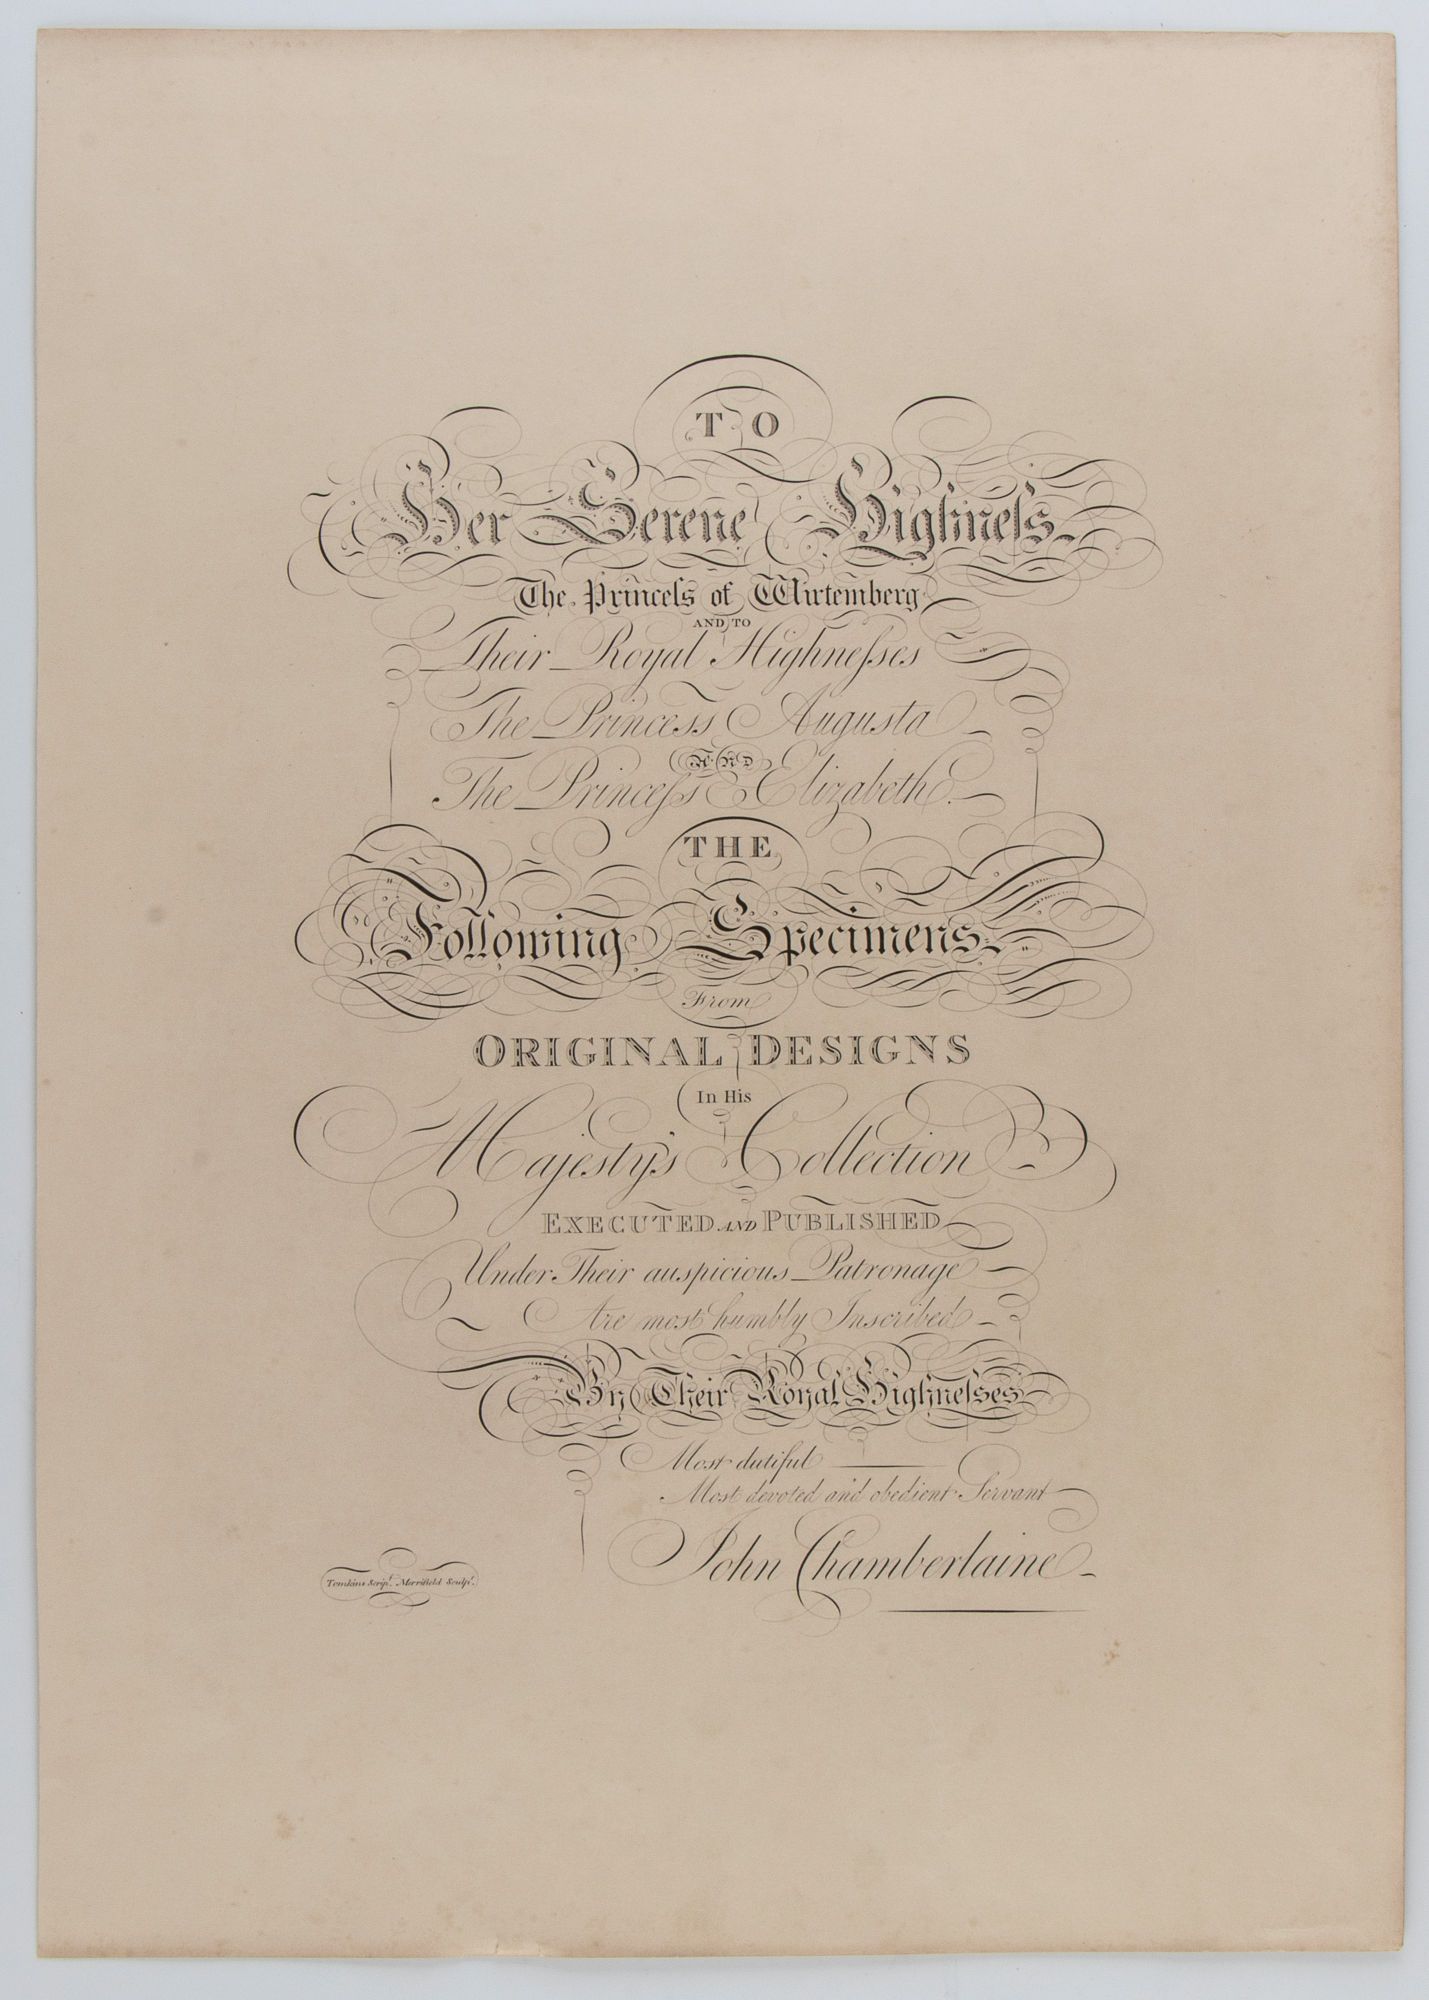 TO
Her Serene Highneſs
The Princeſs of Wirtemberg
AND TO
Their Royal Highneſses
The Princess Augusta
AND
The Princeſs Elizabeth.
THE
Following Specimens
From
ORIGINAL DESIGNS
In His
Majesty's Collection
EXECUTED AND PUBLISHED
Under Their auspicious Patronage
Are most humbly Inscribed
By Their Royal Highneſses
Most dutiful
Most devoted and obedient Servant
John Chamberlaine
Tomkins Script. Merrifield Sculpt.